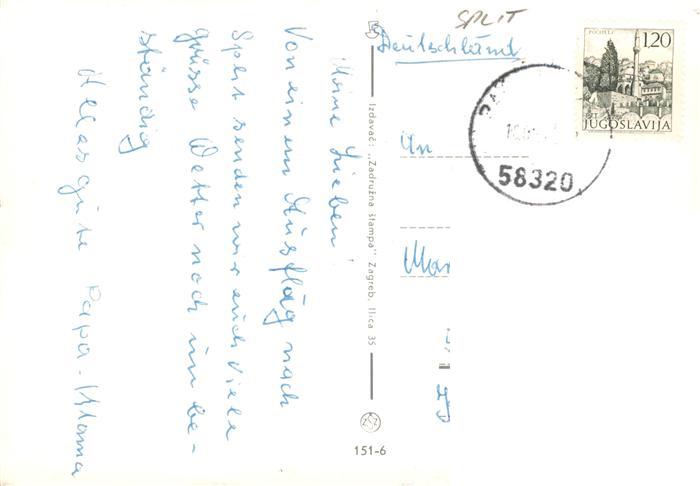 Meine Lieben!
Von einem Ausflug nach
Split senden wir euch viele
grüsse Wetter noch im be-
ständig
Alles gute Papa-Mama
Izdavač: „Zadružna štampa" Zagreb, Ilica 35
151-6
SPLIT
Deutschland
An
POČITELJ
1,20
PTT
JUGOSLAVIJA
58320